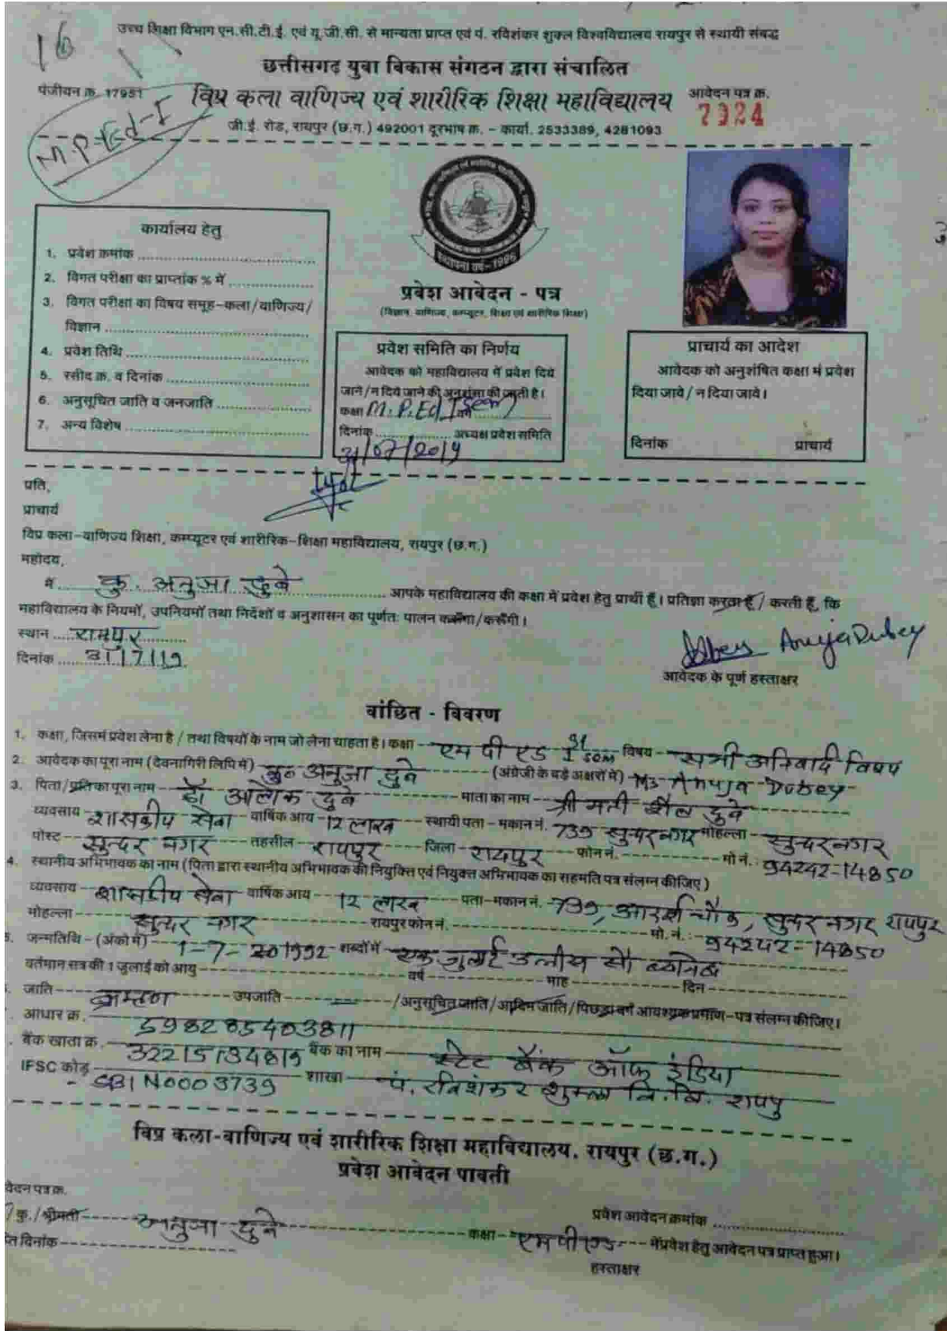 16
उच्च शिक्षा विभाग एन.सी.टी.ई. एवं यू.जी.सी. से मान्यता प्राप्त एवं पं. रविशंकर शुक्ल विश्वविद्यालय रायपुर से स्थायी संबद्ध
छत्तीसगढ़ युवा विकास संगठन द्वारा संचालित
पंजीयन क्र. 17951 विप्र कला वाणिज्य एवं शारीरिक शिक्षा महाविद्यालय आवेदन पत्र क्र.
7924
जी.ई. रोड, रायपुर (छ.ग.) 492001 दूरभाष क्र. - कार्या. 2533389, 4281093
M.P.Ed-I
कार्यालय हेतु
1. प्रवेश क्रमांक
2. विगत परीक्षा का प्राप्तांक % में
3. विगत परीक्षा का विषय समूह-कला/वाणिज्य/
विज्ञान
4. प्रवेश तिथि
5. रसीद क्र. व दिनांक
6. अनुसूचित जाति व जनजाति
7. अन्य विशेष
स्थापना वर्ष-1996
प्रवेश आवेदन - पत्र
(विज्ञान, वाणिज्य, कम्प्यूटर, शिक्षा एवं शारीरिक शिक्षा)
प्रवेश समिति का निर्णय
आवेदक को महाविद्यालय में प्रवेश दिये
जाने/न दिये जाने की अनुशंसा की जाती है।
कक्षा M.P.Ed. I Sem
दिनांक अध्यक्ष प्रवेश समिति
31/07/2019
प्राचार्य का आदेश
आवेदक को अनुशंषित कक्षा में प्रवेश
दिया जावे/ न दिया जावे।
दिनांक प्राचार्य
प्रति,
प्राचार्य
विप्र कला-वाणिज्य शिक्षा, कम्प्यूटर एवं शारीरिक-शिक्षा महाविद्यालय, रायपुर (छ.ग.)
महोदय,
मैं कु. अनुजा दुबे आपके महाविद्यालय की कक्षा में प्रवेश हेतु प्रार्थी हूँ। प्रतिज्ञा करता हूँ/ करती हूँ, कि
महाविद्यालय के नियमों, उपनियमों तथा निर्देशों व अनुशासन का पूर्णतः पालन करूँगा/करूँगी।
स्थान रायपुर
दिनांक 31/7/19
Anuja Dubey
आवेदक के पूर्ण हस्ताक्षर
वांछित - विवरण
1. कक्षा, जिसमें प्रवेश लेना है / तथा विषयों के नाम जो लेना चाहता है। कक्षा एम पी एड Ist sem विषय सभी अनिवार्य विषय
2. आवेदक का पूरा नाम (देवनागिरी लिपि में) कु० अनुजा दुबे (अंग्रेजी के बड़े अक्षरों में) Ms Anuja Dubey
3. पिता/पति का पूरा नाम डॉ आलोक दुबे माता का नाम श्रीमती शैल दुबे
व्यवसाय शासकीय सेवा वार्षिक आय 12 लाख स्थायी पता-मकान नं. 739 सुन्दर नगर मोहल्ला सुन्दर नगर
पोस्ट सुन्दर नगर तहसील रायपुर जिला रायपुर फोन नं. मो नं. 94242-14850
4. स्थानीय अभिभावक का नाम (पिता द्वारा स्थानीय अभिभावक की नियुक्ति एवं नियुक्त अभिभावक का सहमति पत्र संलग्न कीजिए)
व्यवसाय शासकीय सेवा वार्षिक आय 12 लाख पता-मकान नं. 739, आदर्श चौक, सुन्दर नगर रायपुर
मोहल्ला सुन्दर नगर रायपुर फोन नं. मो. नं. 94242-14850
5. जन्मतिथि-(अंको में) 1-7-1992 शब्दों में एक जुलाई उन्नीस सौ
वर्तमान सत्र की 1 जुलाई को आयु वर्ष माह दिन
जाति ब्राम्हण उपजाति /अनुसूचित जाति/आदिम जाति/पिछड़ा वर्ग आवश्यक प्रमाण-पत्र संलग्न कीजिए।
आधार क्र. 598285403811
बैंक खाता क्र. 32215134819 बैंक का नाम स्टेट बैंक ऑफ इंडिया
IFSC कोड SBIN0003739 शाखा पं. रविशंकर शुक्ला वि. वि. रायपु
विप्र कला-वाणिज्य एवं शारीरिक शिक्षा महाविद्यालय, रायपुर (छ.ग.)
प्रवेश आवेदन पावती
वेदन पत्र क्र. प्रवेश आवेदन क्रमांक
/कु./श्रीमती अनुजा दुबे कक्षा एम पी एड में प्रवेश हेतु आवेदन पत्र प्राप्त हुआ।
दिनांक हस्ताक्षर